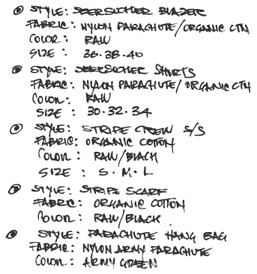 STYLE: SEERSUCKER BLAZER
FABRIC: NYLON PARACHUTE/ORGANIC CTN
COLOR: RAW
SIZE : 36.38.40
STYLE: SEERSUCKER SHORTS
FABRIC: NYLON PARACHUTE/ORGANIC CTN
COLOR: RAW
SIZE : 30.32.34
STYLE: STRIPE CREW S/S
FABRIC: ORGANIC COTTON
COLOR: RAW/BLACK
SIZE : S.M.L
STYLE: STRIPE SCARF
FABRIC: ORGANIC COTTON
COLOR: RAW/BLACK
STYLE: PARACHUTE HANG BAG
FABRIC: NYLON ARMY PARACHUTE
COLOR: ARMY GREEN